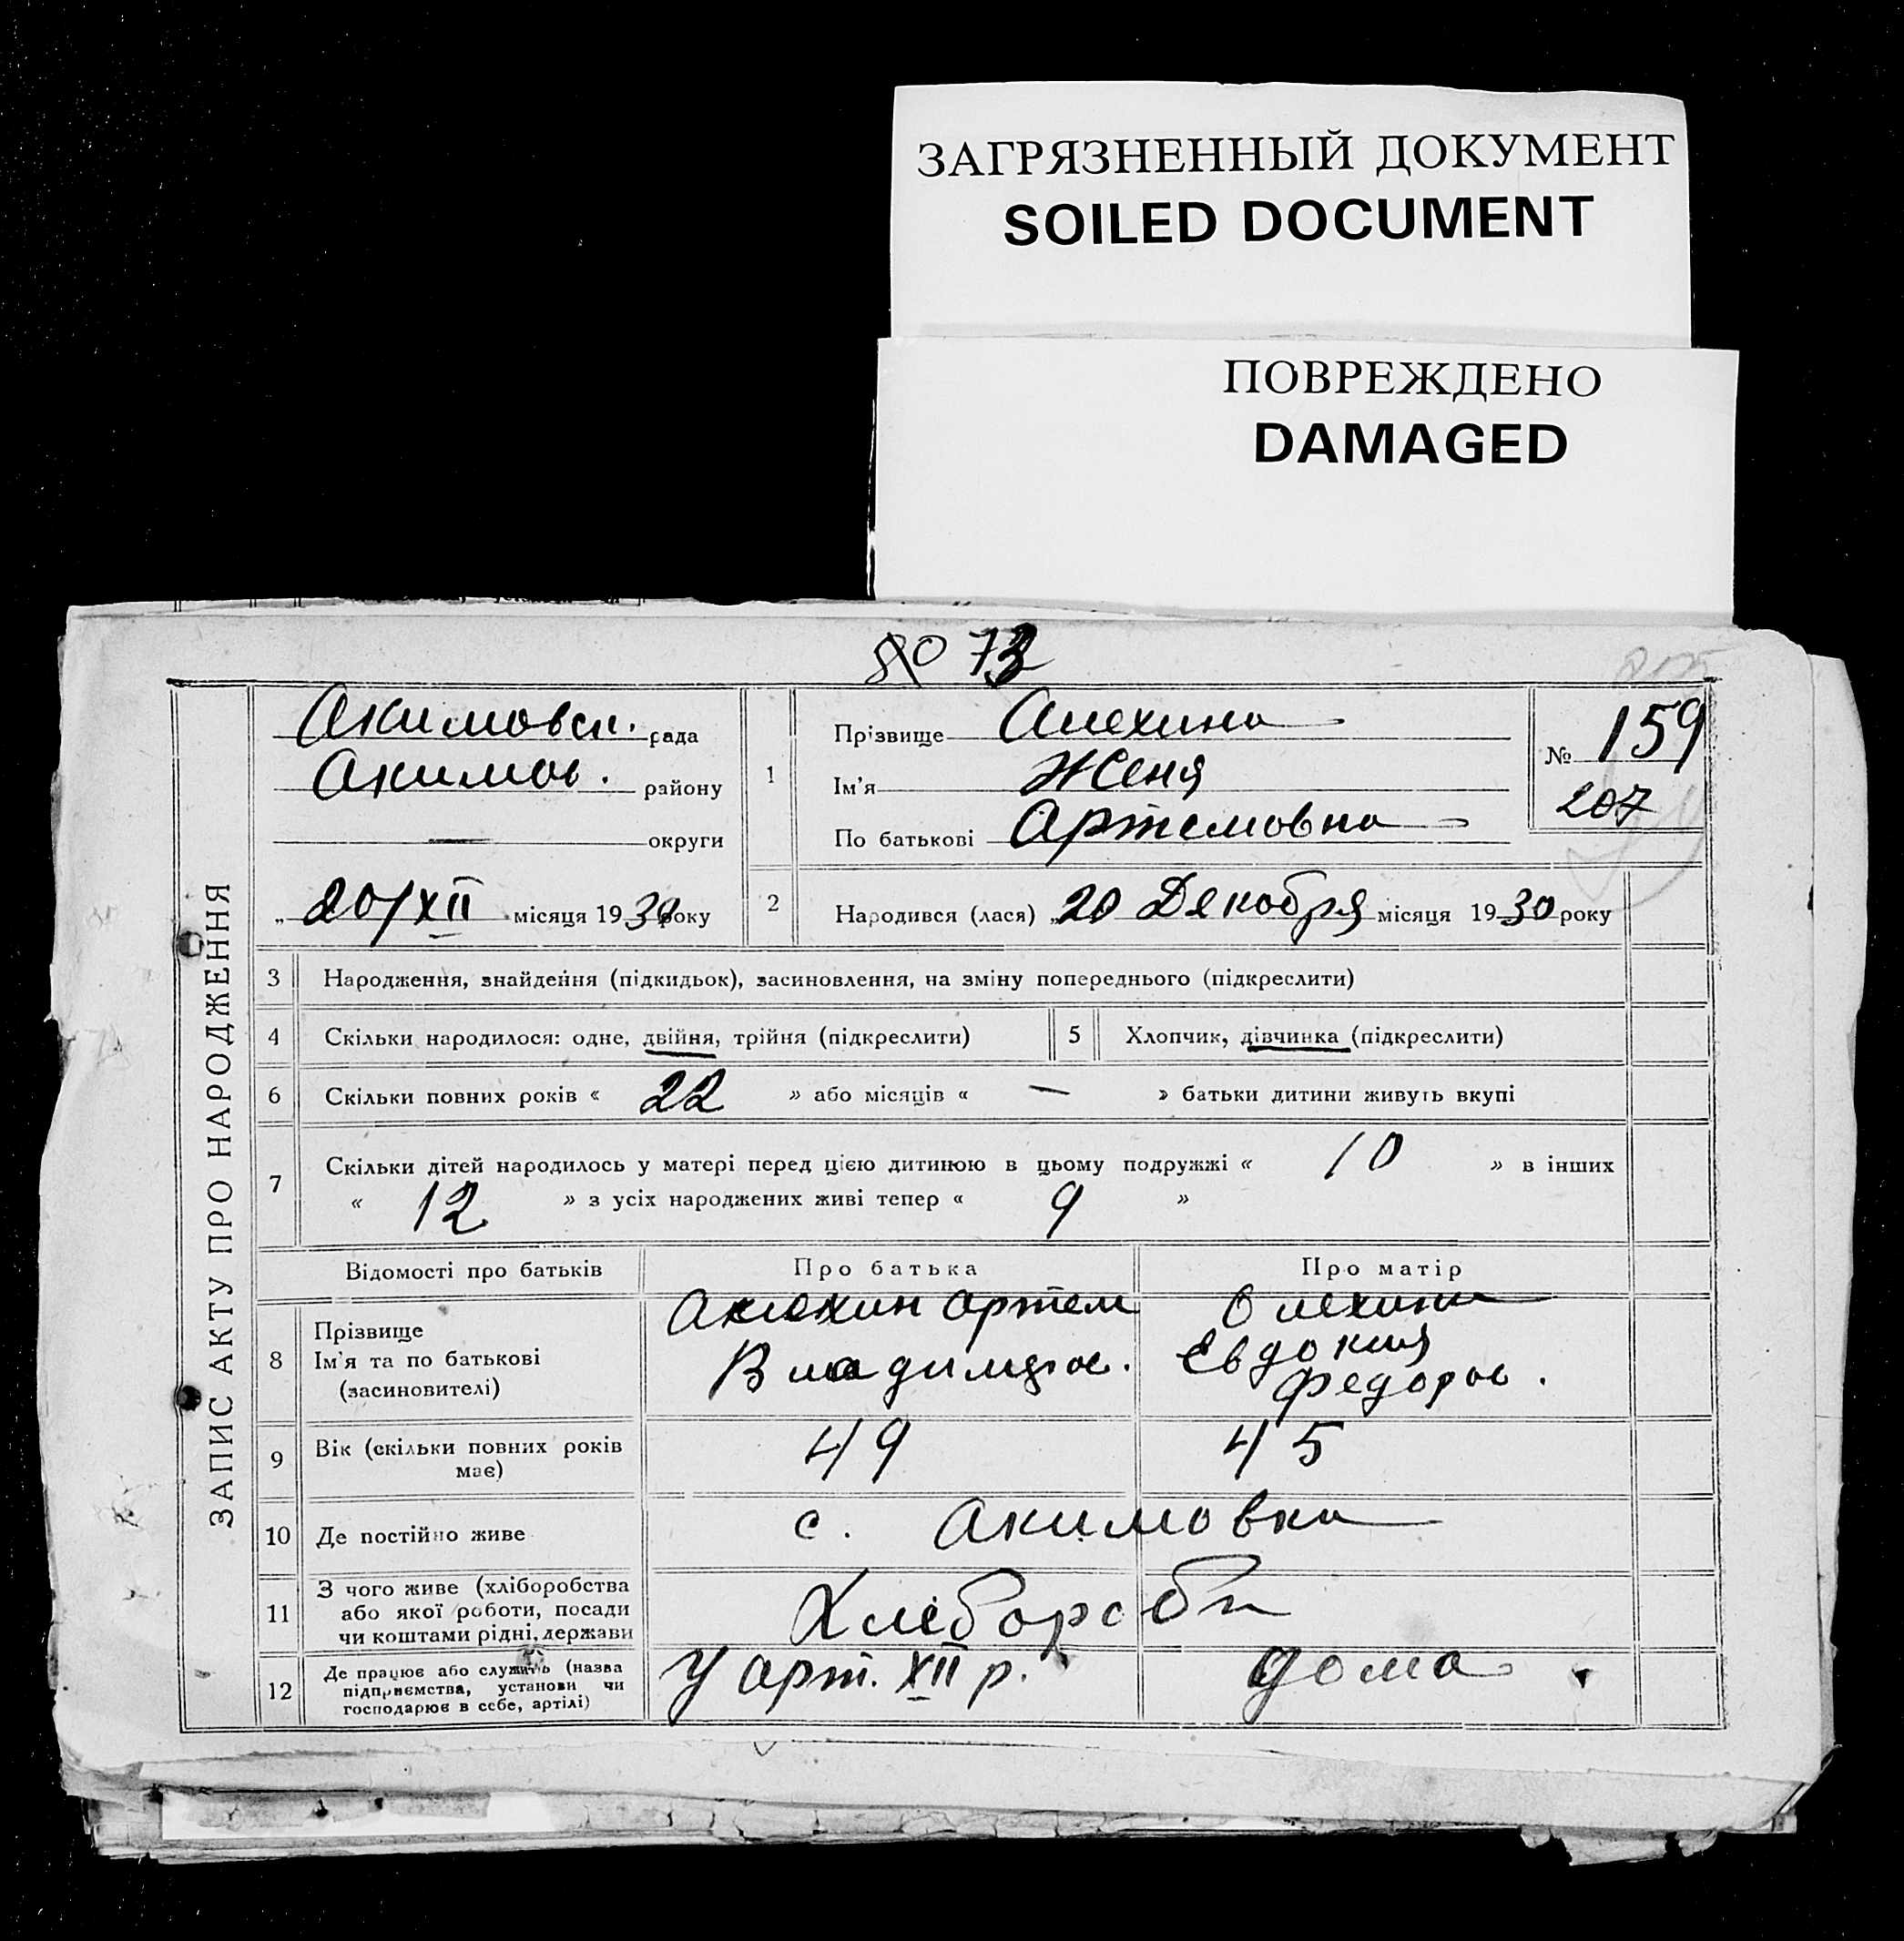 ЗАГРЯЗНЕННЫЙ ДОКУМЕНТ
SOILED DOCUMENT
ПОВРЕЖДЕНО
DAMAGED
80 73
ЗАПИС АКТУ ПРО НАРОДЖЕННЯ
Акимовск. рада
Акимов. району
округи
„ 20/XII місяця 1930 року
1
Прізвище Алехина
Ім'я Женя
По батькові Артемовна
№ 159
207
2 Народився (лася) „ 20 Декобря місяця 1930 року
3 Народження, знайдення (підкидьок), засиновлення, на зміну попереднього (підкреслити)
4 Скільки народилося: одне, двійня, трійня (підкреслити) 5 Хлопчик, дівчинка (підкреслити)
6 Скільки повних років « 22 » або місяців « — » батьки дитини живуть вкупі
7 Скільки дітей народилось у матері перед цією дитиною в цьому подружжі « 10 » в інших
« 12 » з усіх народжених живі тепер « 9 »
Відомості про батьків Про батька Про матір
8 Прізвище
Ім'я та по батькові
(засиновителі)
Алехин Артем
Владимров.
Олехина
Евдокия
Федоров.
9 Вік (скільки повних років
має)
49 45
10 Де постійно живе с. Акимовка
11 З чого живе (хліборобства
або якої роботи, посади
чи коштами рідні, держави
Хлібороби
12 Де працює або служить (назва
підприємства, установи чи
господарює в себе, артілі)
У арт. XII р. дома